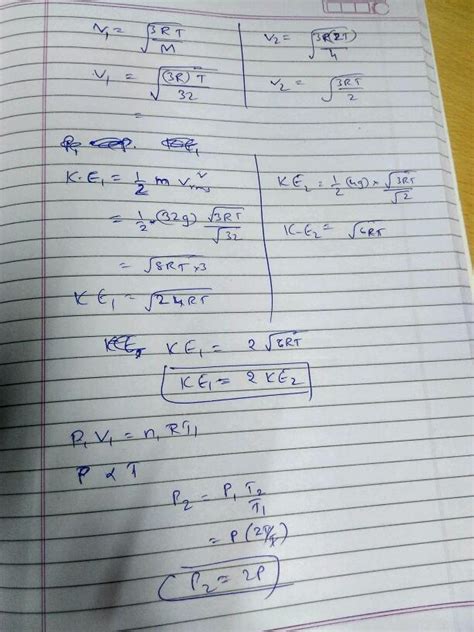 V₁ = √(3RT/M)
V₁ = √((3R)T/32)
=
V₂ = √(3R(2T)/4)
V₂ = √(3RT/2)
K.E₁ = 1/2 m Vrms²
= 1/2 × (32g) √3RT/√32
= √8RT×3
KE₁ = √24RT
KE₂ = 1/2 (4g) × √3RT/√2
K.E₂ = √6RT
KE₁ = 2√6RT
KE₁ = 2KE₂
P₁V₁ = n₁RT₁
P ∝ T
P₂ = P₁ T₂/T₁
= P(2T/T)
P₂ = 2P